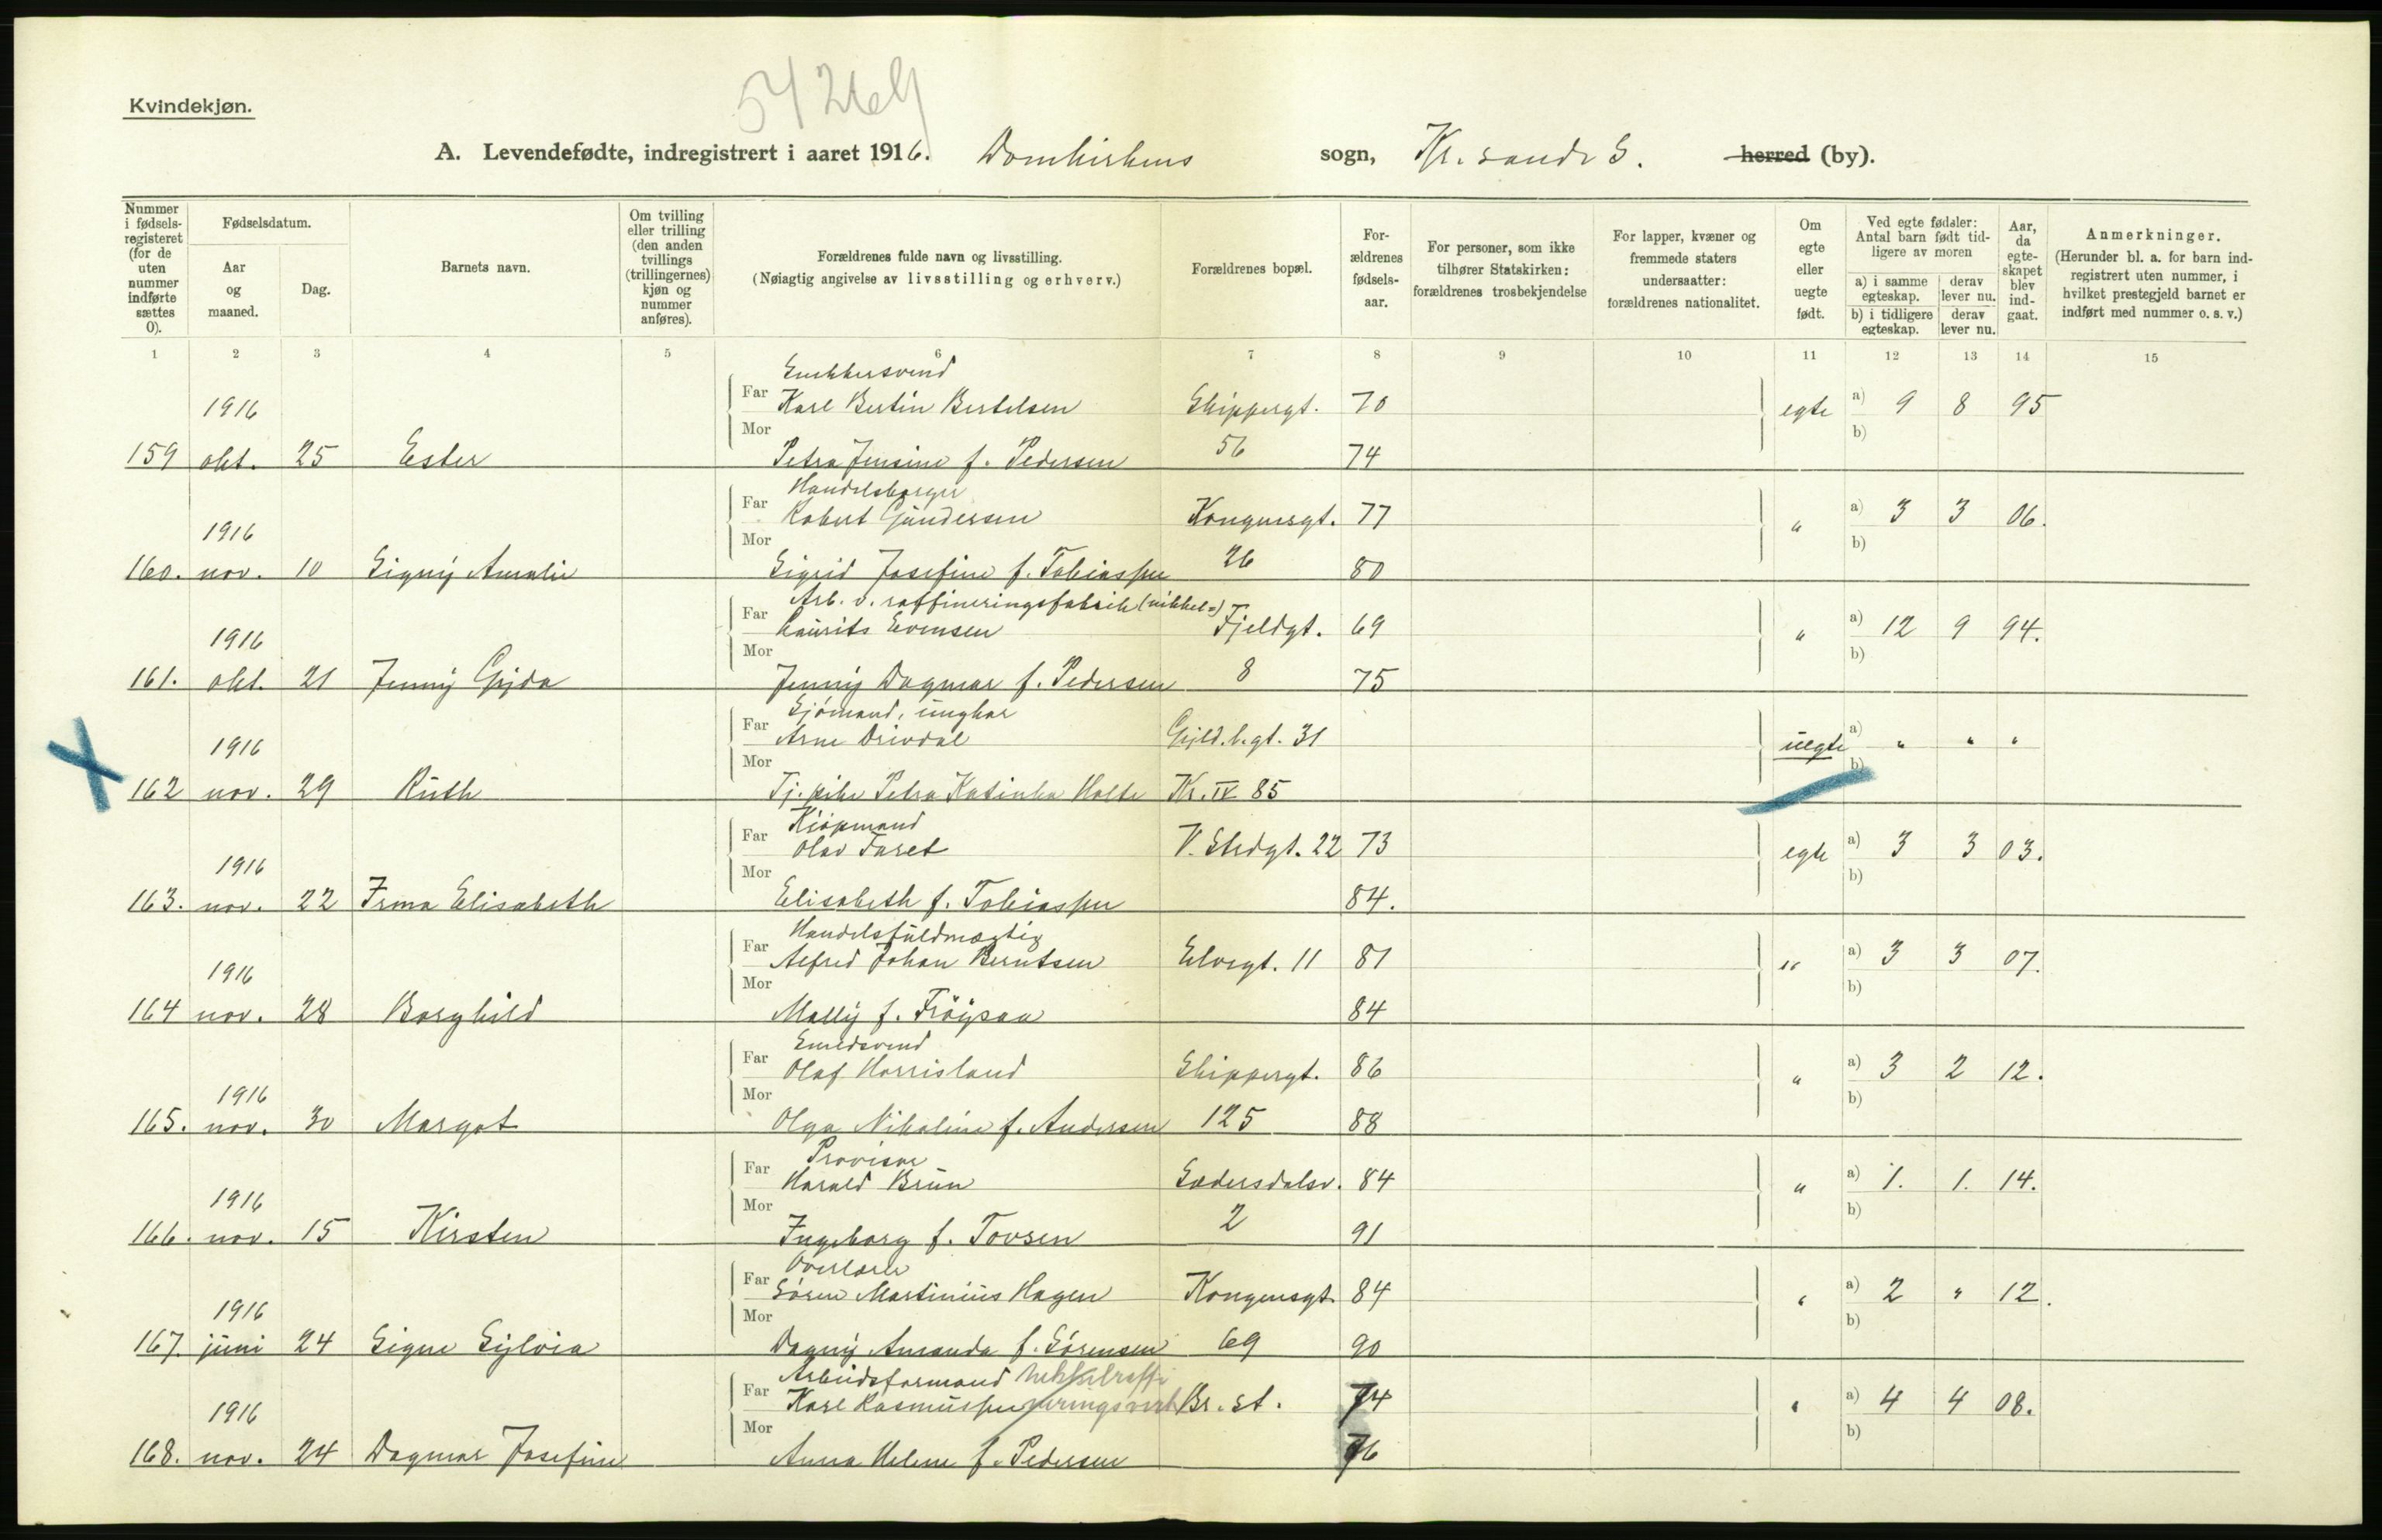 Kvindekjøn.
A. Levendefødte, indregistrert i aaret 1916. Domkirkens sogn, Kr.sands S. herred (by).
Nummer i fødselsregisteret (for de uten nummer indførte sættes 0).
Fødselsdatum.
Aar og maaned.
Dag.
Barnets navn.
Om tvilling eller trilling (den anden tvillings (trillingernes) kjøn og nummer anføres).
Forældrenes fulde navn og livsstilling. (Nøiagtig angivelse av livsstilling og erhverv.)
Forældrenes bopæl.
Forældrenes fødselsaar.
For personer, som ikke tilhører Statskirken: forældrenes trosbekjendelse
For lapper, kvæner og fremmede staters undersaatter: forældrenes nationalitet.
Om egte eller uegte født.
Ved egte fødsler: Antal barn født tidligere av moren
a) i samme egteskap. derav lever nu.
b) i tidligere egteskap. derav lever nu.
Aar, da egteskapet blev indgaat.
Anmerkninger. (Herunder bl. a. for barn indregistrert uten nummer, i hvilket prestegjeld barnet er indført med nummer o. s. v.)
1 2 3 4 5 6 7 8 9 10 11 12 13 14 15
Snekkersvend
1916 Far Karl Bertin Bertelsen Skippergt. 70 egte a) 9 8 95
b)
159 okt. 25 Ester Mor Petra Jensine f. Pedersen 56 74
Handelsborger
1916 Far Robert Gundersen Kongensgt. 77 " a) 3 3 06.
b)
160. nov. 10 Signy Amalie Mor Sigrid Josefine f. Tobiassen 26 80
Arb. v. raffineringsfabrik (nikkel=)
1916 Far Laurits Evensen Fjeldgt. 69 " a) 12 9 94.
b)
161. okt. 21 Jenny Gyda Mor Jenny Dagmar f. Pedersen 8 75
Sjømand, ungkar
1916 Far Arne Drivdal Gyld.l.gt. 31 uegte a) " " "
b)
162 nov. 29 Ruth Mor Tj.pike Petra Katinka Holte Kr. IV 85
Kjøpmand
1916 Far Olav Faret V. Strdgt. 22 73 egte a) 3 3 03.
b)
163. nov. 22 Irma Elisabeth Mor Elisabeth f. Tobiassen 84.
Handelsfuldmægtig
1916 Far Alfred Johan Berntsen Elvegt. 11 81 " a) 3 3 07.
b)
164 nov. 28 Borghild Mor Mally f. Frøysaa 84
Smedsvend
1916 Far Olaf Horrisland Skippergt. 86 " a) 3 2 12.
b)
165. nov. 30 Margot Mor Olga Nikoline f. Andersen 125 88
Provisor
1916 Far Harald Brun Sædersdalsv. 84 " a) 1. 1. 14.
b)
166. nov. 15 Kirsten Mor Ingeborg f. Tovsen 2 91
Overlærer
1916 Far Søren Martinius Hagen Kongensgt. 84 " a) 2 " 12.
b)
167. juni 24 Signe Sylvia Mor Dagny Amanda f. Sørensen 69 90
Arbeidsformand nikkelraffi
1916 Far Karl Rasmussen neringsverk Br. st. 74 " a) 4 4 08.
b)
168. nov. 24 Dagmar Josefine Mor Anna Helene f. Pedersen 76